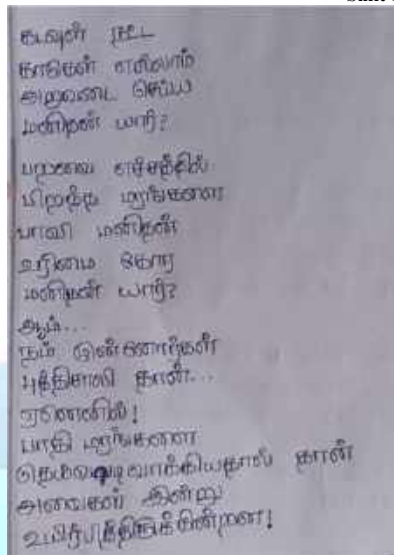 கடவுள் நட்ட
காடுகள் எல்லாம்
அறுவடை செய்ய
மனிதன் யார்?
பறவை எச்சத்தில்
பிறந்த மரங்களை
பாவி மனிதன்
உரிமை கோர
மனிதன் யார்?
ஆம்...
நம் முன்னோர்கள்
புத்திசாலி தான்...
ஏனெனில்!
பாதி மரங்களை
தெய்வவடிவாக்கியதால் தான்
அவைகள் இன்று
உயிர்பித்திருக்கின்றன!